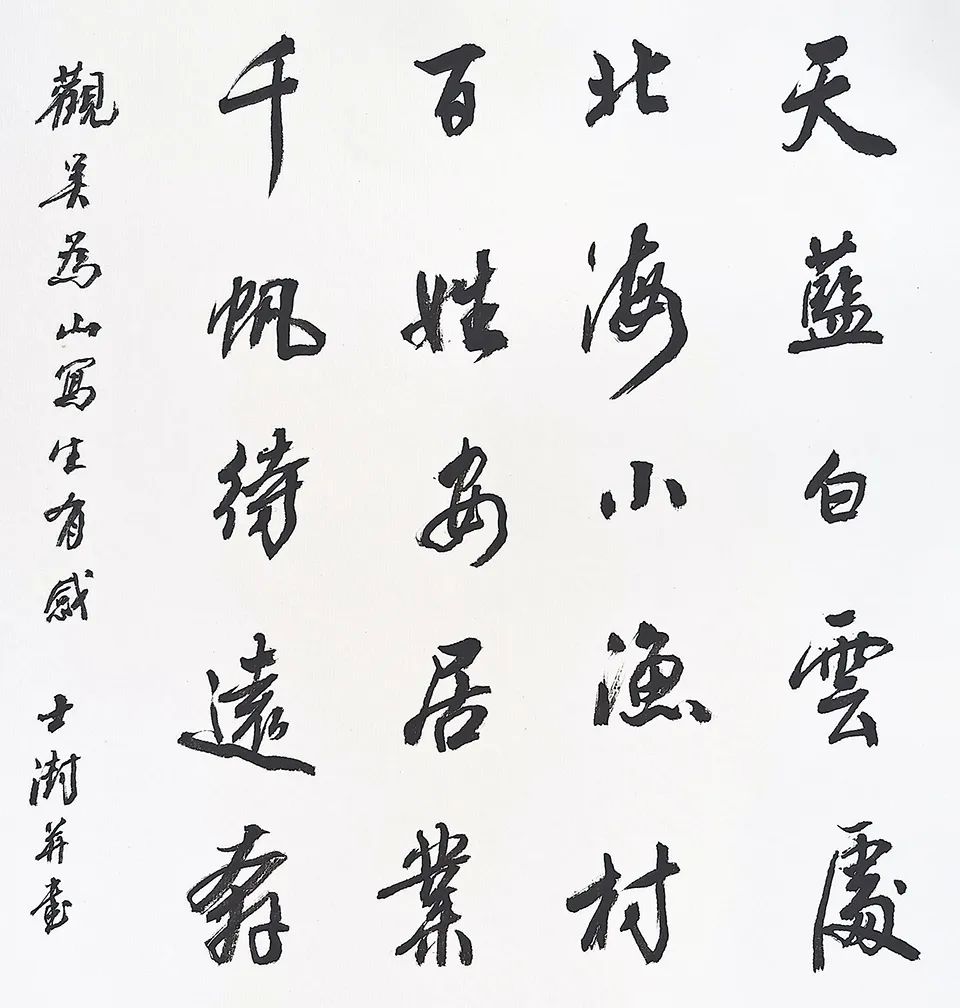 天藍白雲處
北海小漁村
百姓安居業
千帆待遠奔
觀吴為山寫生有感 士澍并書